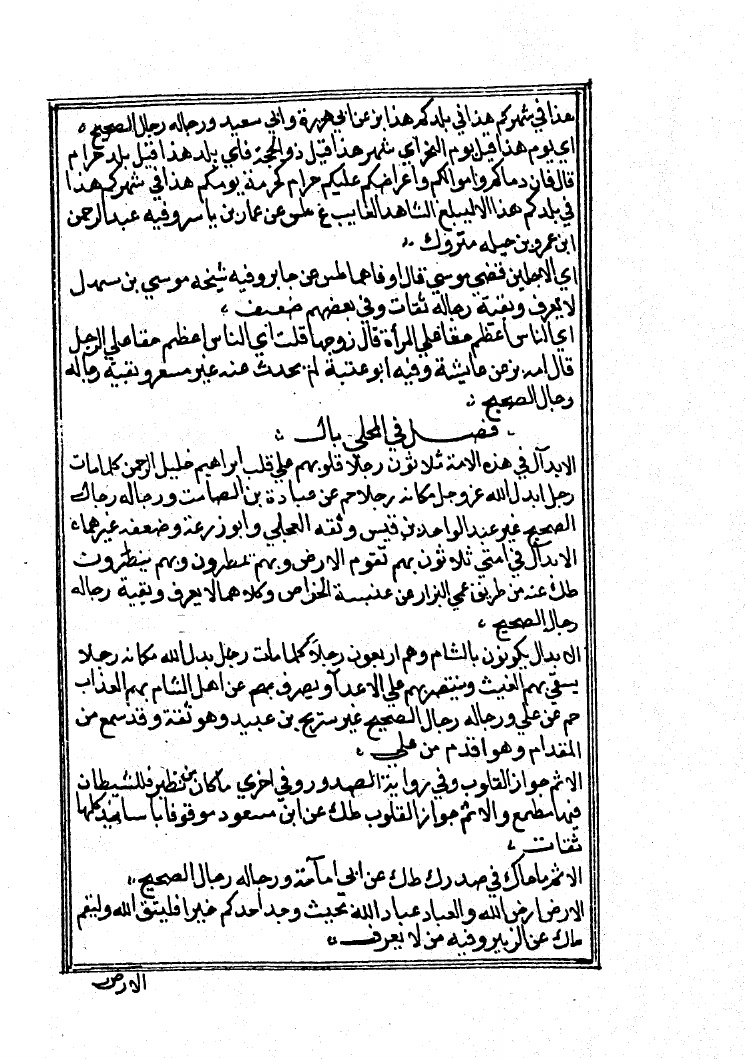 هذا في شهركم هذا في بلدكم هذا بز عن ابي هريرة وابي سعيد ورجاله رجال الصحيح
اي يوم هذا قيل يوم النحر اي شهر هذا قيل ذو الحجة فاي بلد هذا قيل بلد حرام
قال فان دماكم واموالكم واعراضكم عليكم حرام كحرمة يومكم هذا في شهركم هذا
في بلدكم هذا الا ليبلغ الشاهد الغايب غ طس عن عمار بن ياسر وفيه عبد الرحمن
ابن عمرو بن جبله متروك
اي الاجلين قضي موسي قال اوفاهما طس عن جابر وفيه شيخه موسي بن سهل
لا يعرف وبقية رجاله ثقات وفي بعضهم ضعيف
اي الناس اعظم حقا علي المرأة قال زوجها قلت اي الناس اعظم حقا علي الرجل
قال امه بز عن عايشة وفيه ابو عتبة لم يحدث عنه غير مسعر وبقية رجاله
رجال الصحيح
فصل في المحلي بال
الابدال في هذه الامة ثلاثون رجلا قلوبهم علي قلب ابراهيم خليل الرحمن كلما مات
رجل ابدل الله عز وجل مكانه رجلا حم عن عبادة بن الصامت ورجاله رجال
الصحيح غير عبد الواحد بن قيس وثقه العجلي وابو زرعة وضعفه غيرهما
الابدال في امتي ثلاثون بهم تقوم الارض وبهم تمطرون وبهم ينصرون
طك عنه من طريق البزار عن عنبسة الخواص وكلاهما لا يعرف وبقية رجاله
رجال الصحيح
الابدال يكونون بالشام وهم اربعون رجلا كلما مات رجل بدل الله مكانه رجلا
يسقي بهم الغيث وينتصر بهم علي الاعدآ ويصرف بهم عن اهل الشام بهم العذاب
حم عن علي ورجاله رجال الصحيح غير شريح بن عبيد وهو ثقة وقد سمع من
المقدام وهو اقدم من علي
الاثم حواز القلوب وفي رواية الصدور وفي اخري ما كان من نظر فللشيطان
فيها مطمع والاثم حواز القلوب طك عن ابن مسعود موقوفا باسانيد كلها
ثقات
الاثم ما حاك في صدرك طك عن ابي امامة ورجاله رجال الصحيح
الارض ارض الله والعباد عباد الله فحيث وجد احدكم خيرا فليتق الله وليقم
طك عن الزبير وفيه من لا يعرف
الارض